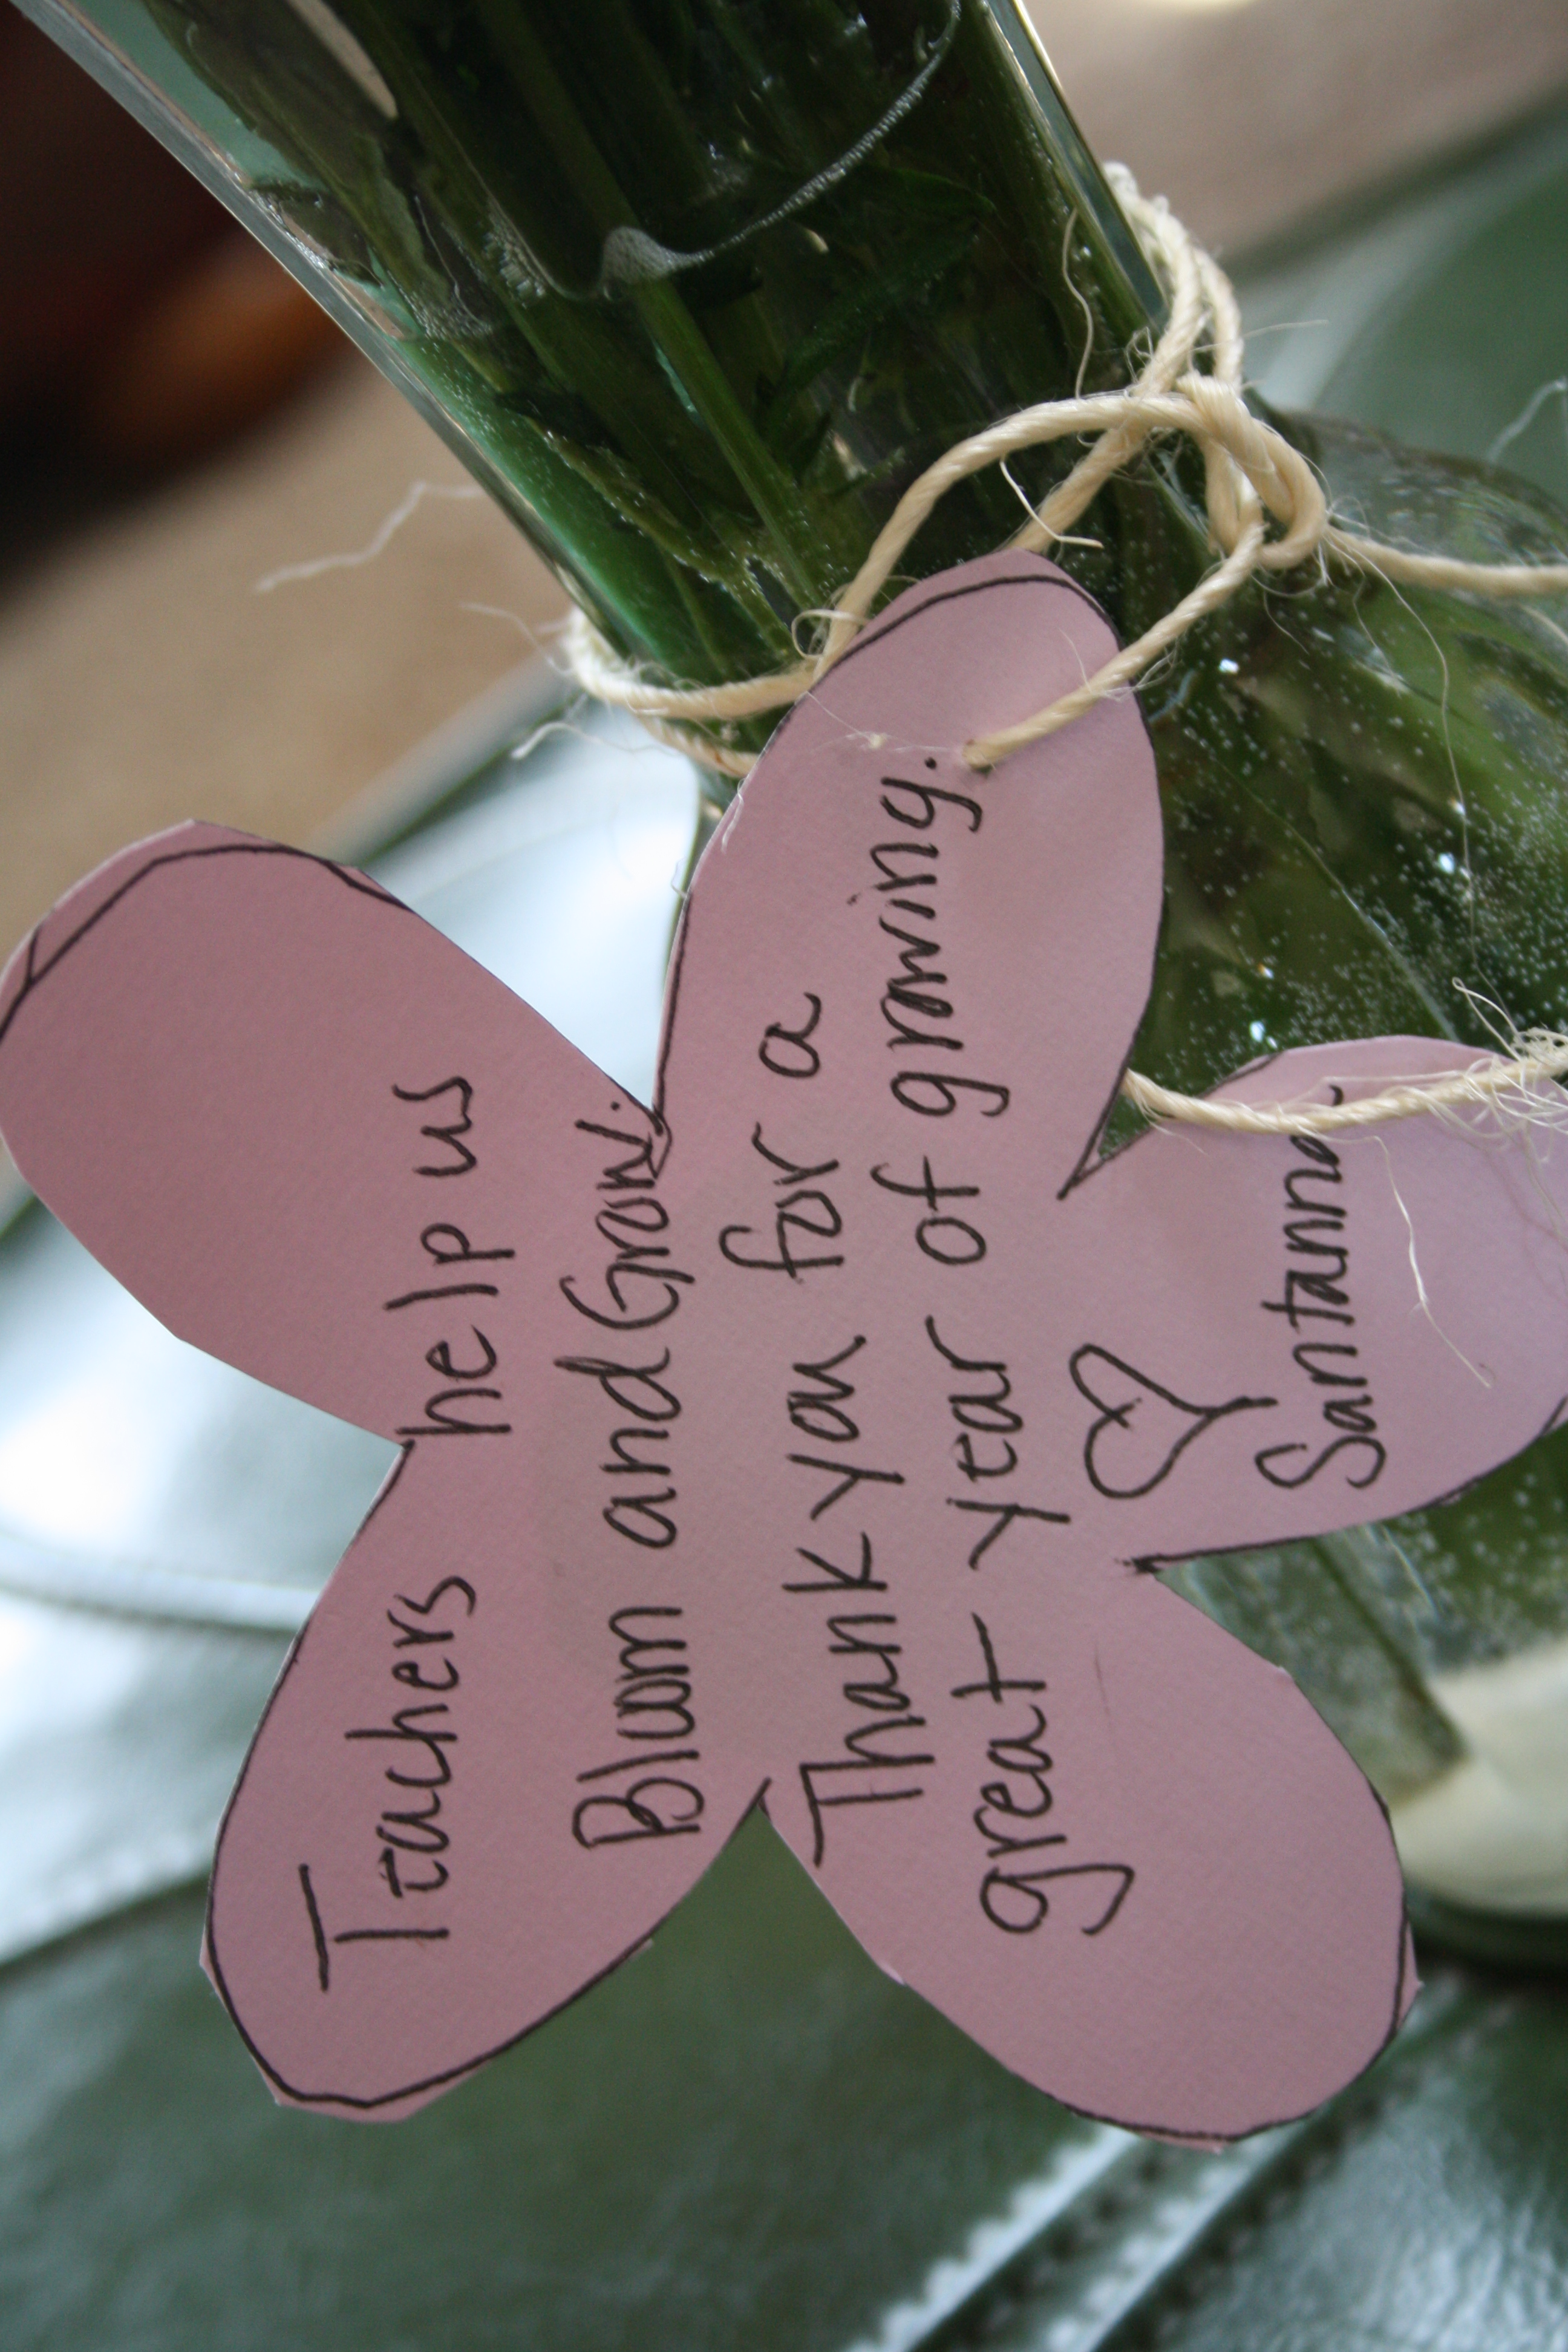 Teachers help us
Bloom and Grow.
Thank you for a
great year of growing.
Santanna